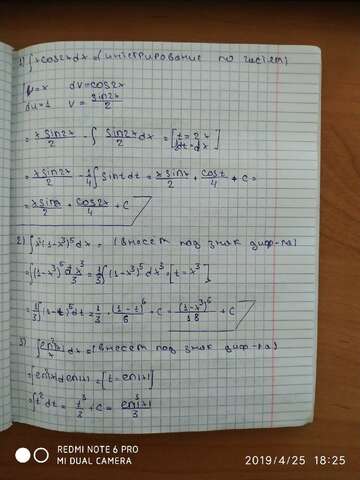 1) ∫xcos2xdx = (интегрирование по частям)
u=x dv=cos2x
du=1 v=sin2x/2
= x sin2x/2 - ∫ sin2x/2 dx = [t=2x
= x sin2x/2 - 1/4 ∫ sint dt = x sin2x/2 + cost/4 + c =
+ cos2x/4 + C
2) ∫x²(1-x³)⁵dx = (внесем под знак диф-ла)
= ∫(1-x³)⁵ dx³/3 = 1/3 ∫(1-x³)⁵ dx³ = [t=x³]
= 1/3 ∫(1-t)⁵dt = 1/3 · (1-t)⁶/6 + C = (1-x³)⁶/18 + C
3) dx = (внесем под знак диф-ла)
= [t=ln|x|]
= ∫t²dt = t³/3 + C = ln³|x|/3
REDMI NOTE 6 PRO
MI DUAL CAMERA
2019/4/25 18:25